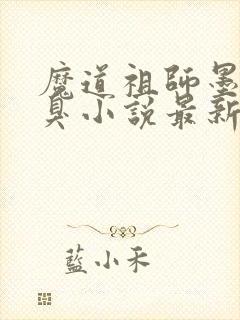 魔道祖師墨
臭小說最新
藍小禾